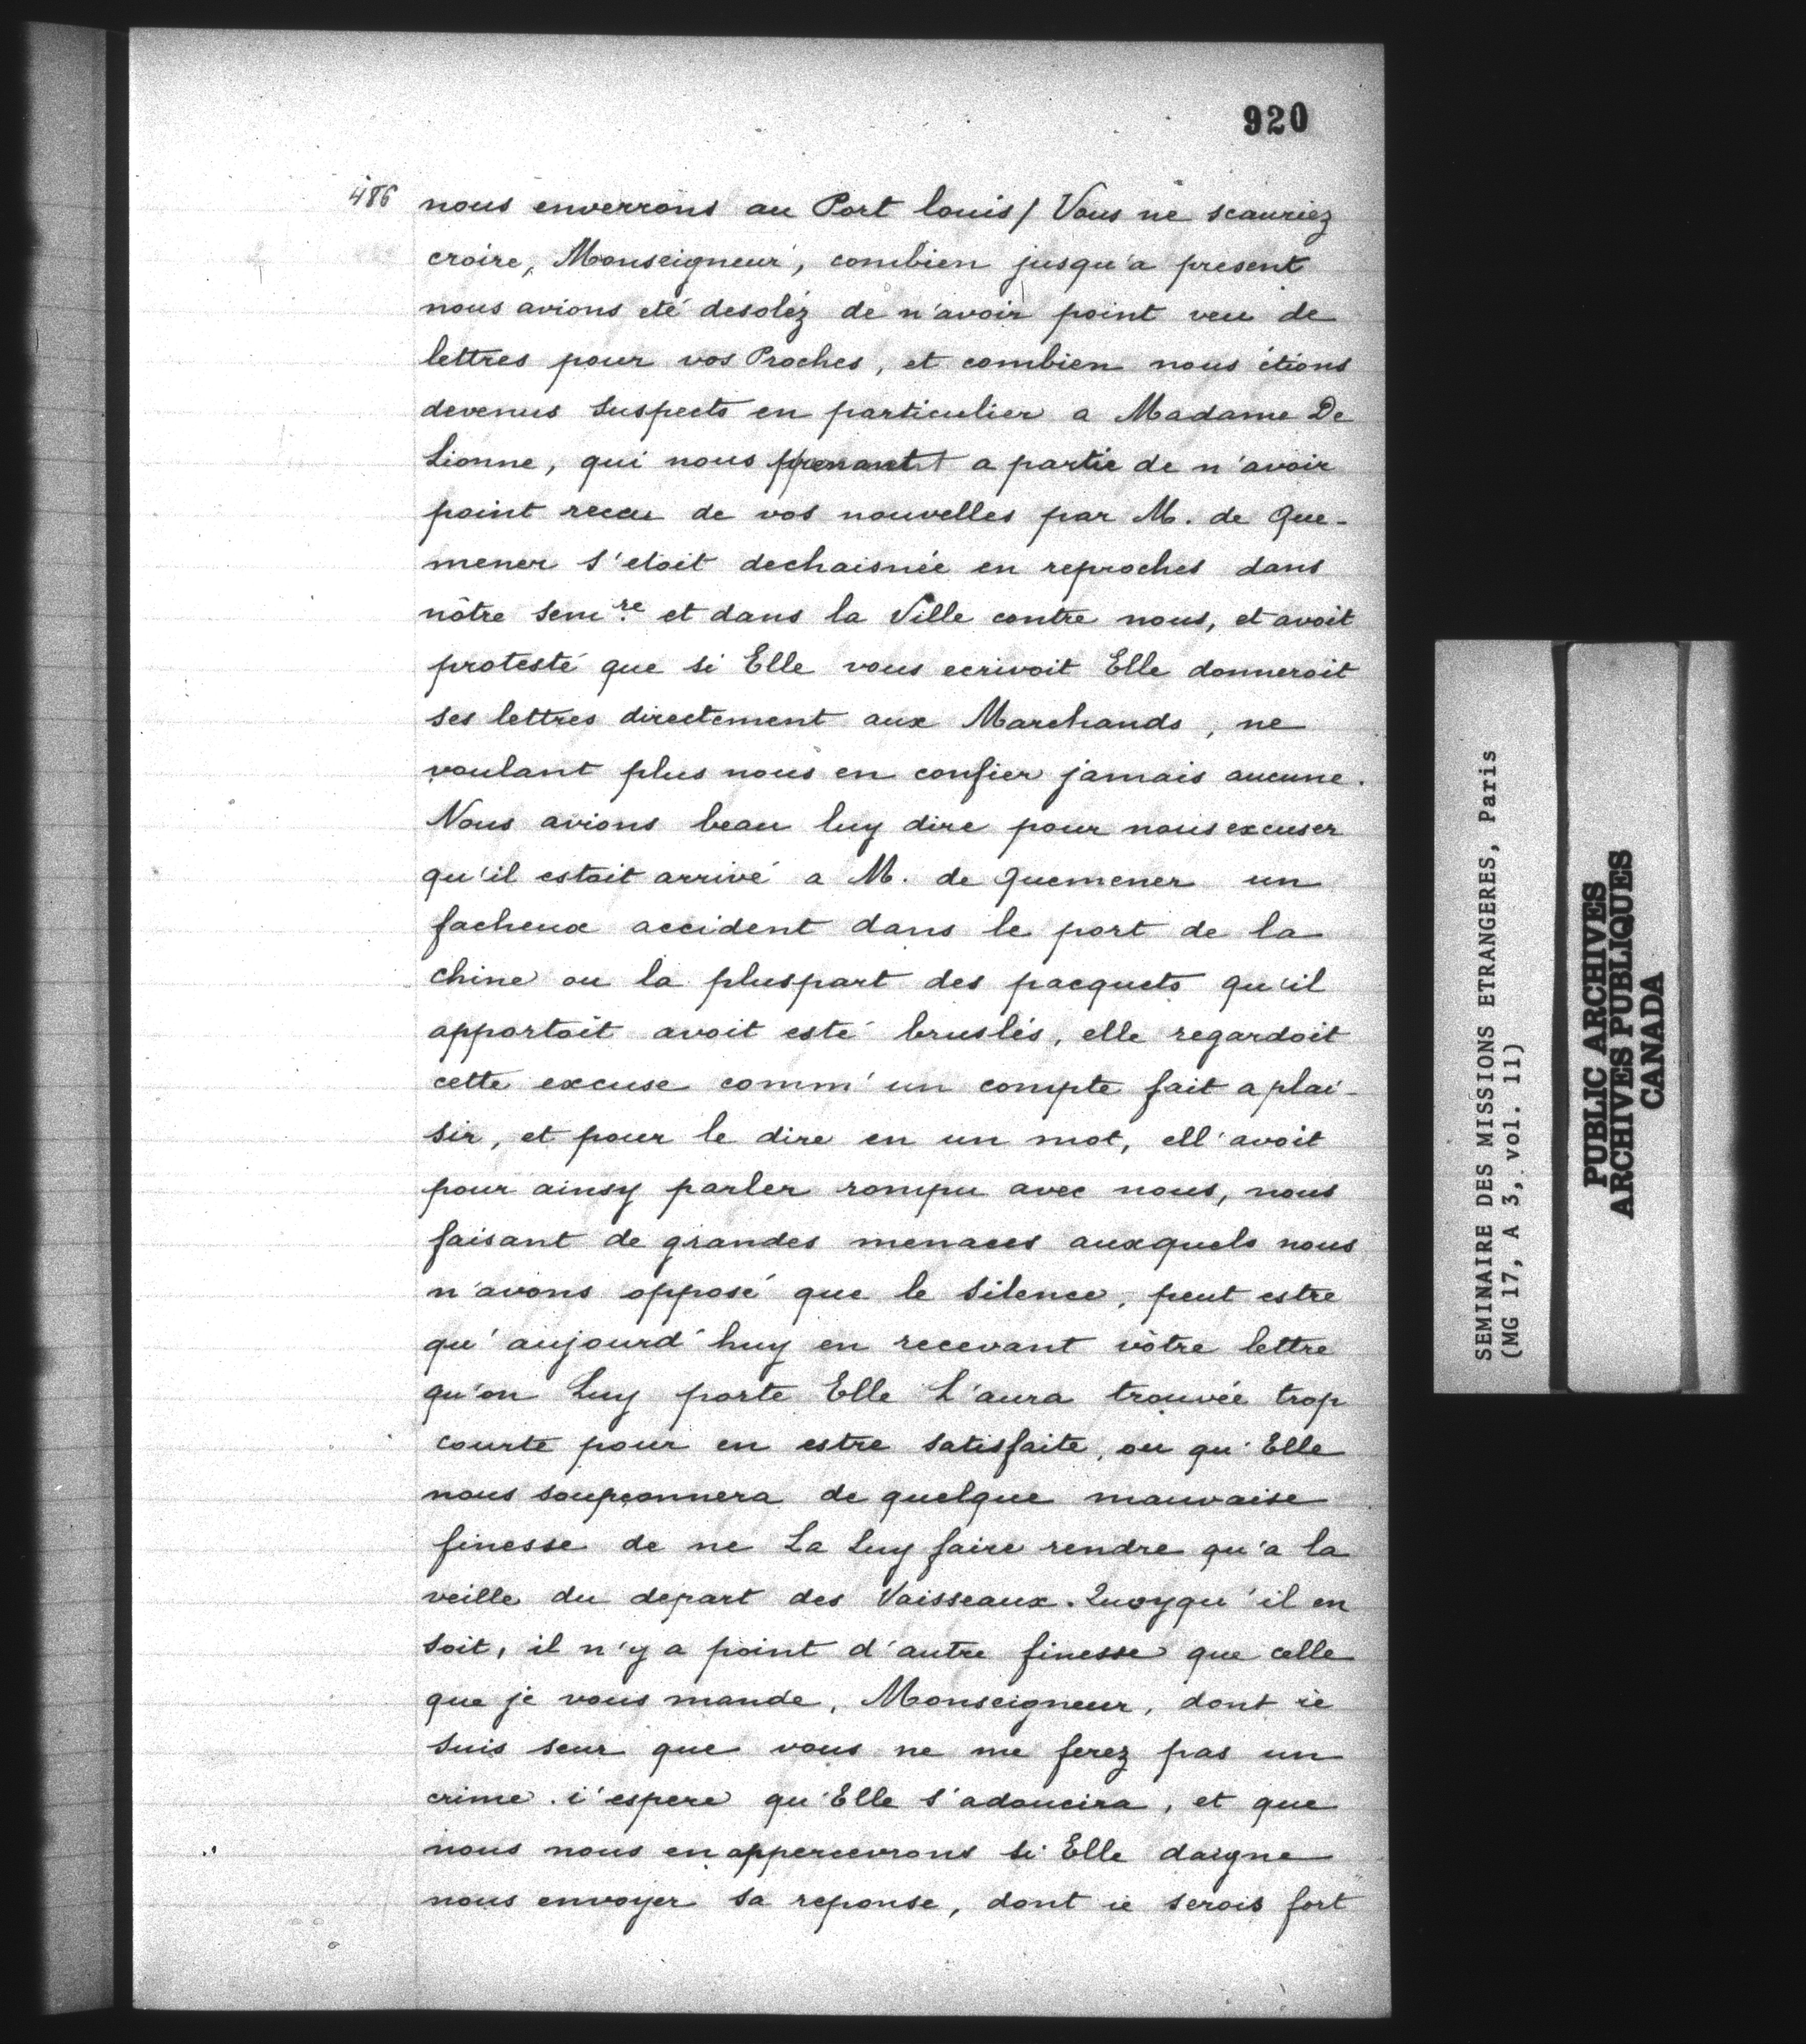 920
486 nous enverrons au Port louis / Vous ne scauriez
croire, Monseigneur, combien jusqu'a present
nous avions eté desoléz de n'avoir point veu de
lettres pour vos Proches, et combien nous étions
devenus suspects en particulier a Madame De
Lionne, qui nous prenant a partie de n'avoir
point receu de vos nouvelles par M. de Que-
mener s'etoit dechaisnée en reproches dans
nôtre Sem.re et dans la Ville contre nous, et avoit
protesté que si Elle vous ecrivoit Elle donneroit
ses lettres directement aux Marchands, ne
voulant plus nous en confier jamais aucune.
Nous avions beau luy dire pour nous excuser
qu'il estoit arrivé a M. de Quemener un
facheux accident dans le port de la
chine ou la pluspart des pacquets qu'il
apportoit avoit esté bruslés, elle regardoit
cette excuse comm'un compte fait a plai-
sir, et pour le dire en un mot, ell'avoit
pour ainsy parler rompu avec nous, nous
faisant de grandes menaces auxquels nous
n'avons opposé que le silence, peut estre
qu'aujourd'huy en recevant vôtre lettre
qu'on Luy porte Elle L'aura trouvée trop
courte pour en estre satisfaite, ou qu'Elle
nous soupçonnera de quelque mauvaise
finesse de ne La Luy faire rendre qu'a la
veille du depart des Vaisseaux. Quoyqu'il en
soit, il n'y a point d'autre finesse que celle
que je vous mande, Monseigneur, dont ie
suis seur que vous ne me ferez pas un
crime. i'espere qu'Elle s'adoucira, et que
nous nous en appercevrons si Elle daigne
nous envoyer sa reponse, dont ie serois fort
SEMINAIRE DES MISSIONS ETRANGERES, Paris
(MG 17, A 3, vol. 11)
PUBLIC ARCHIVES
ARCHIVES PUBLIQUES
CANADA